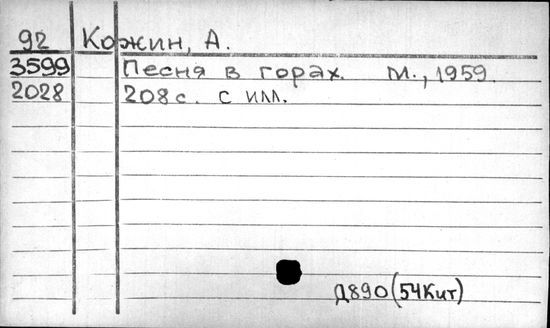 92 Кожин, А.
3599 Песня в горах. М., 1959.
2028 208 с. с илл.
Д890(54Кит)